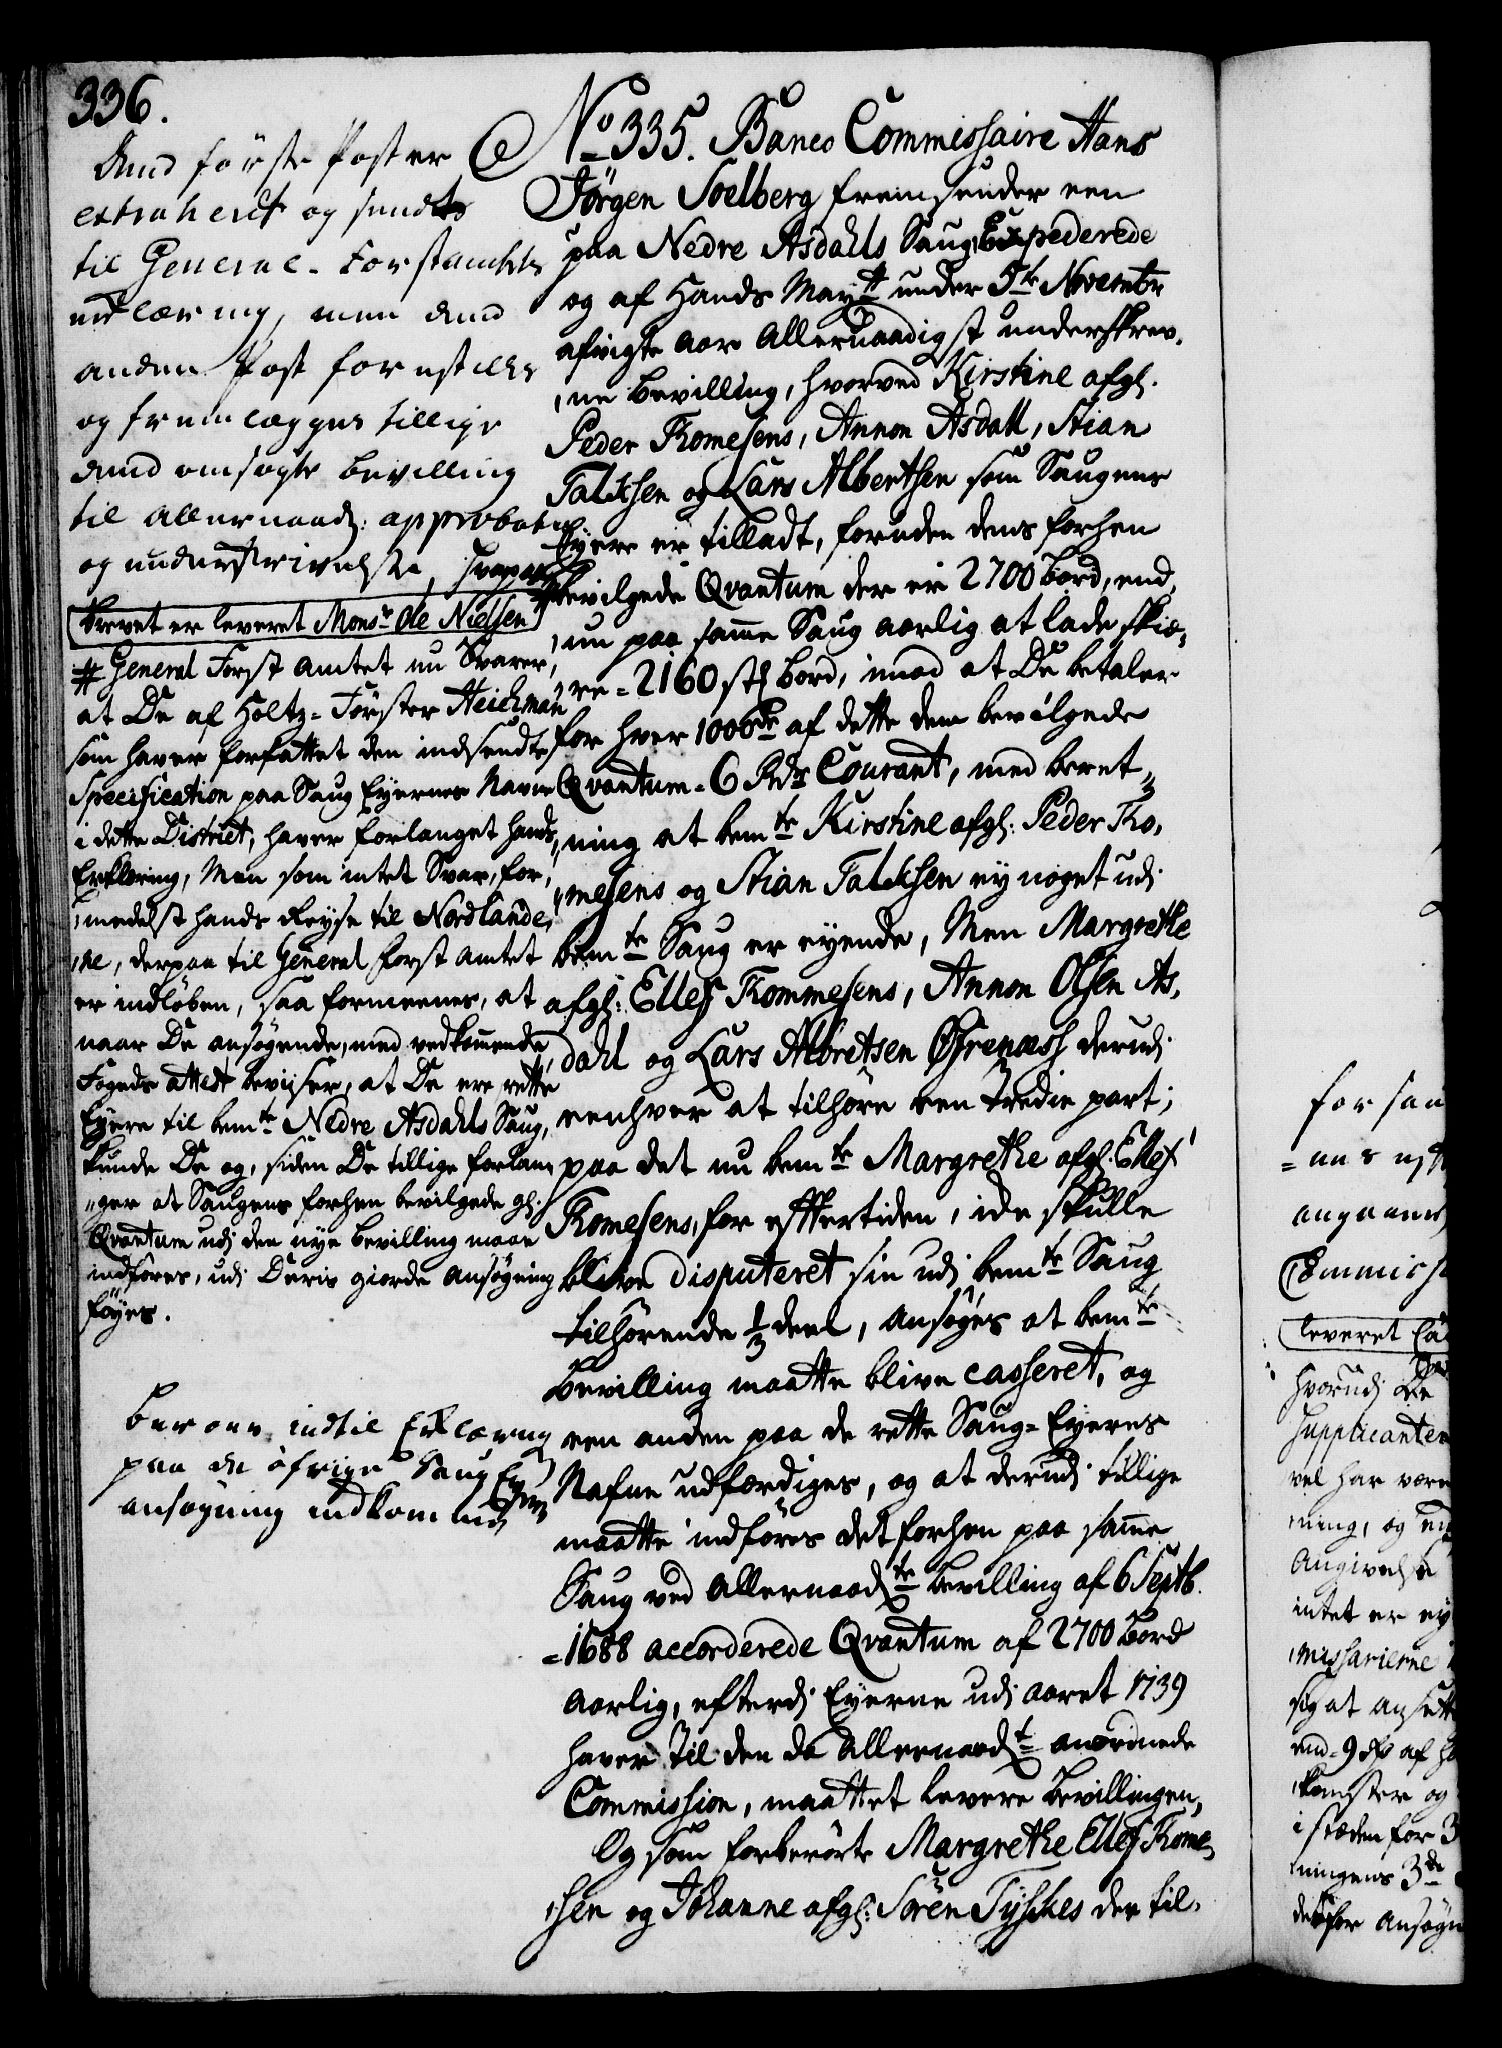 336.
Dend förste Post er
extraheret og sendt
til General-Forstamtets
erklæring, men dend
anden Post forestilles
og fremlægges tillige
dend ansøgte bevilling
til allernaad: approbation
og underskrivelse, hvorpaa
brevet er leveret Monsr Ole Nielsen
# General Forst Amtet nu Svarer,
at De af Holtz-Förster Aeichman
som haver forfattet den indsendte
Specification paa Saug Eyernes Navne
i dette District, haver forlanget hands
Erklæring, Men som intet Svar, for,
,medelst hands Reyse til Nordlande,
,ne, derpaa til General Forst Amtet
er indløben, saa formeenes, at
naar De ansøgende, med vedkommende
Fogeds attest beviiser, at De ere rette
Eyere til bemte Nedre Asdahls Saug,
kunde De og, siden De tillige forlan,
,,ger at Saugens forhen bevilgede gl:
Qvantum udj den nye bevilling maae
indföres, udj Deris giorde Ansøgning
föyes.
beroer indtil Erklæring
paa de öfrige Saug Eyeres
ansøgning indkommer
No 335. Banco Commissaire Hans
Jörgen Soelberg fremsender een
paa Nedre Asdahls Saug Expederede
og af Hands Maytt under 5te Novembr
afvigte Aar Allernaadigst underskrev,
,ne bevilling, hvorved Kirstine afgl.
Peder Tromesens, Annon Asdall, Stian
Falcksen og Lars Albertsen som Saugens
Eyere er tilladt, foruden dens forhen
bevilgede Qvantum der er 2700 bord, end,
,nu paa samme Saug aarlig at lade skiæ,
,re = 2160 st: bord, imod at De betaler
for hver 1000de af dette dem bevilgede
Qvantum = 6 Rdr Courant, med beret,
,ning at bemte Kirstine afgl: Peder Tro,
,,mesens og Stian Falcksen ey noget udj
bemte Saug er eyende, Men Margrethe
afgl: Ellef Trommesens, Annon Olsen As,
dahl og Lars Albretsen Øfrenæss derudj
eenhver at tilhöre een tredie part;
paa det nu bemte Margrethe afgl. Ellef
Tromesens, for efftertiden, icke skulle
blive disputeret sin udj bemte Saug
tilhörende 1/3 deel, Ansøges at bemte
Bevilling maatte blive casseret, og
een anden paa de rette Saug-Eyeres
Nafne udfærdiges, og at derudj tillige
maatte indföres det forhen paa samme
Saug ved Allernaadste bevilling af 6 Septb.
=1688 accorderede Qvantum af 2700 Bord
Aarlig, efterdj Eyerne udj Aaret 1739
haver til den da Allernaadt anordnede
Commission, maattet levere bevillingen,
Og som forberörte Margrethe Ellef Trome,
,sen og Johanne afgl: Sören Tyskes der til,
for saa
angaaend
Commiss
leveret
hvorudj De
Supplicanten
vel har være
,ning, og
Angivelse
intet er ey
,missarierne
sig at ansætt
,komster og
i stæden for 3
,ningens 3de
derfor ansøgn